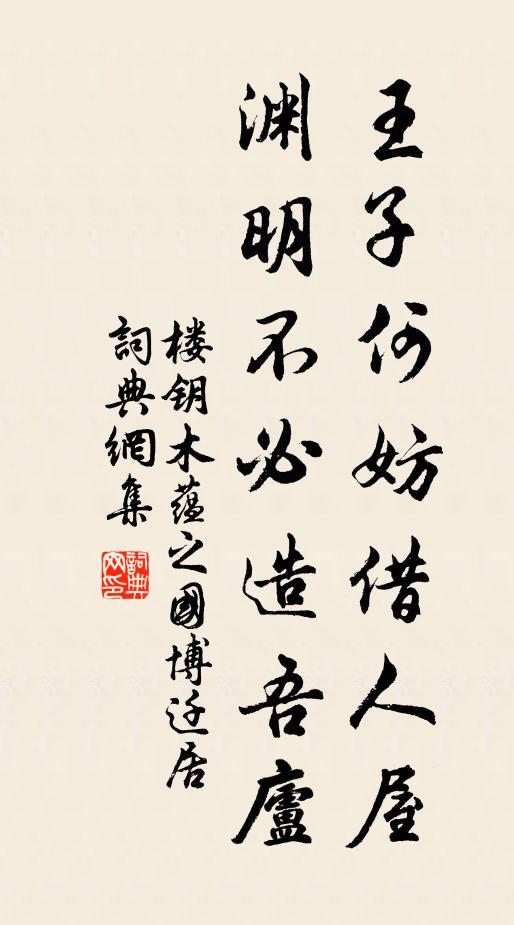 王子何妨借人屋
渊明不必造吾廬
楼钥木蕴之國博迁居
詞典網集
詞典网印